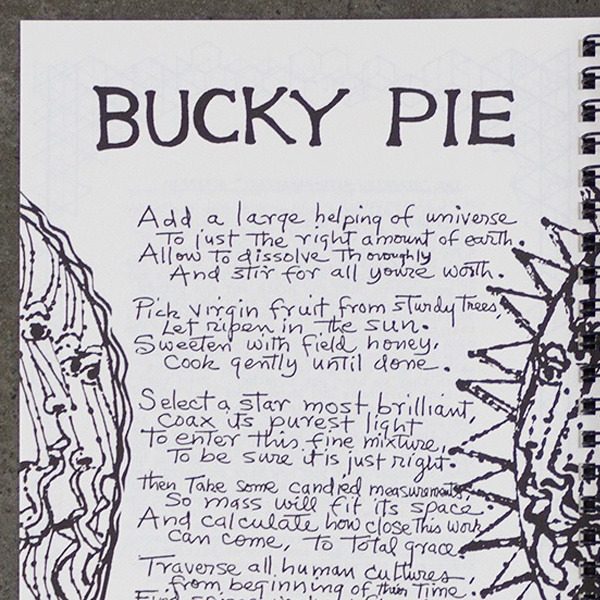 BUCKY PIE
Add a large helping of universe
To just the right amount of earth.
Allow to dissolve thoroughly
And stir for all youre worth.
Pick virgin fruit from sturdy trees,
Let ripen in the sun.
Sweeten with field honey,
Cook gently until done.
Select a star most brilliant,
Coax its purest light
To enter this fine mixture,
To be sure it is just right.
then Take some candied measurements,
So mass will fit its space.
And calculate how close this work
can come, to Total grace.
Traverse all human cultures,
from beginning of their Time.